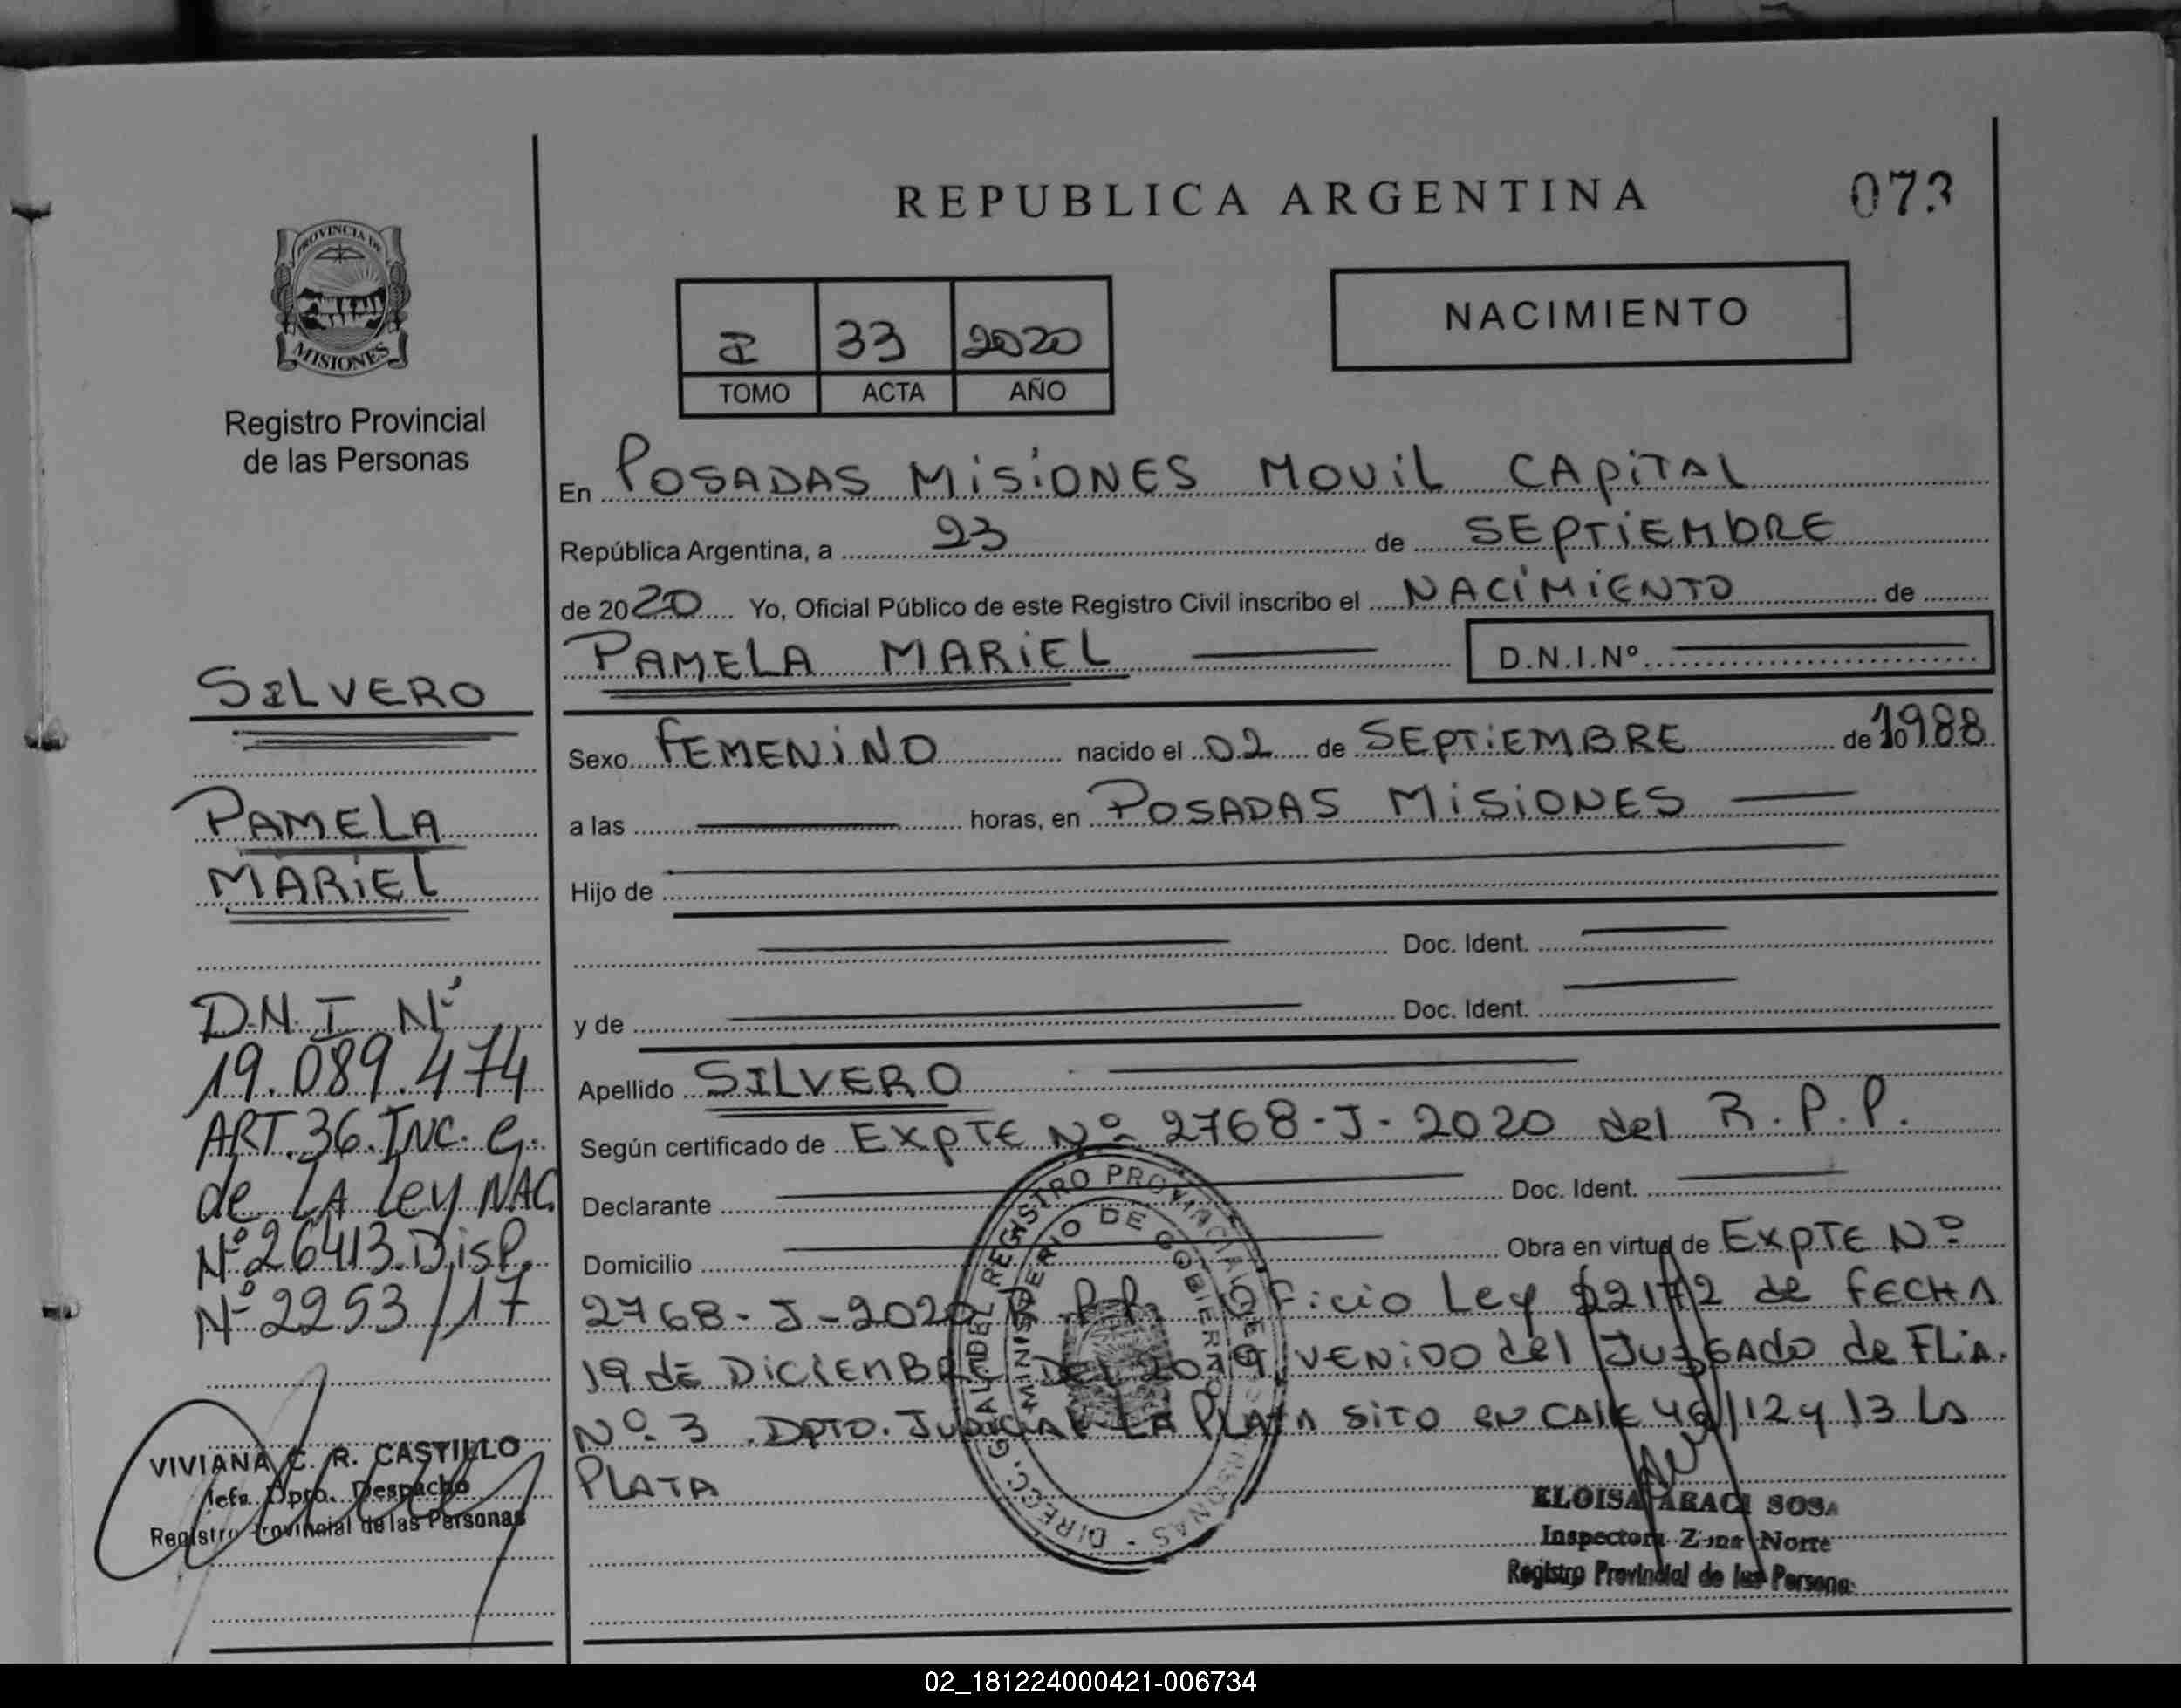 REPUBLICA ARGENTINA
073
PROVINCIA DE
MISIONES
Registro Provincial
de las Personas
I 33 2020
TOMO ACTA AÑO
NACIMIENTO
En POSADAS MISIONES MOVIL CAPITAL
República Argentina, a 23 de SEPTIEMBRE
de 2020 Yo, Oficial Público de este Registro Civil inscribo el NACIMIENTO de
PAMELA MARIEL D.N.I.Nº
Sexo FEMENINO nacido el 02 de SEPTIEMBRE de 1988
a las horas, en POSADAS MISIONES
Hijo de
Doc. Ident.
y de Doc. Ident.
Apellido SILVERO
Según certificado de EXPTE Nº 2768-J-2020 del R.P.P.
Declarante Doc. Ident.
Domicilio Obra en virtud de EXPTE Nº
2768-J-2020 R.P.P. Oficio Ley 22172 de FECHA
19 de DICIEMBRE DEL 2019 VENIDO del JUZGADO de FLIA.
Nº 3 DPTO. JUDICIAL LA PLATA SITO EN CALLE 46/12 y 13 LA
PLATA
SILVERO
PAMELA
MARIEL
D.N.I Nº
19.089.474
ART.36.INC. e.
de LA Ley NAC
Nº 26413.DISP.
Nº 2253/17
VIVIANA C. R. CASTILLO
Jefa Dpto. Despacho
Registro Provincial de las Personas
DIRECC. GRAL. DEL REGISTRO PROVINCIAL DE LAS PERSONAS -
MINISTERIO DE GOBIERNO
ELOISA ARACI SOSA
Inspectora Zona Norte
Registro Provincial de las Persona
02_181224000421-006734